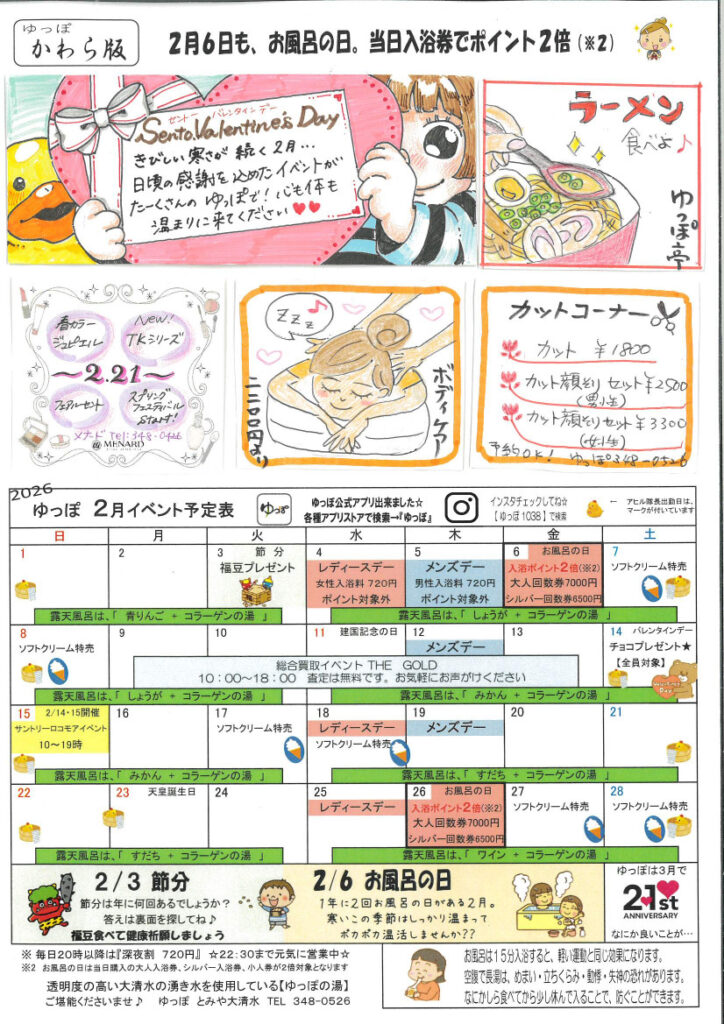 ゆっぽ
かわら版
2月6日も、お風呂の日。当日入浴券でポイント2倍(※2)
セントー バレンタイン デー
Sento.Valentine's Day
きびしい寒さが続く2月…
日頃の感謝を込めたイベントが
たーくさんの ゆっぽで！心も体も
温まりに来てください♥♥
ラーメン
食べよ♪
ゆっぽ亭
春カラー
ジュピエル
New!
TKシリーズ
～2.21～
フェアルセット
スプリング
フェスティバル
START!
メナード Tel:348-0426
MENARD
zzz
ボディケア
二二〇〇円より
カットコーナー
カット ¥1800
カット顔そりセット¥2500
(男性)
カット顔そりセット¥3300
(女性)
予約OK! ゆっぽ348-0526
2026
ゆっぽ 2月イベント予定表
ゆっぽ
ゆっぽ公式アプリ出来ました☆
各種アプリストアで検索→『ゆっぽ』
インスタチェックしてね☆
【ゆっぽ1038】で検索
← アヒル隊長出勤日は、
マークが付いています
日 月 火 水 木 金 土
1 2 3 節分 4 5 6 お風呂の日 7
福豆プレゼント レディースデー メンズデー 入浴ポイント2倍(※2) ソフトクリーム特売
女性入浴料 720円 男性入浴料 720円 大人回数券7000円
ポイント対象外 ポイント対象外 シルバー回数券6500円
露天風呂は、「 青りんご + コラーゲンの湯 」 露天風呂は、「 しょうが + コラーゲンの湯 」
8 9 10 11 建国記念の日 12 13 14 バレンタインデー
ソフトクリーム特売 メンズデー チョコプレゼント★
【全員対象】
総合買取イベント THE GOLD
10：00～18：00 査定は無料です。お気軽にお声がけください
露天風呂は、「 しょうが + コラーゲンの湯 」 露天風呂は、「 みかん + コラーゲンの湯 」
15 2/14・15開催 16 17 18 19 20 21
サントリーロコモアイベント ソフトクリーム特売 レディースデー メンズデー
10～19時 ソフトクリーム特売
露天風呂は、「 みかん + コラーゲンの湯 」 露天風呂は、「 すだち + コラーゲンの湯 」
22 23 天皇誕生日 24 25 26 お風呂の日 27 28
レディースデー 入浴ポイント2倍(※2) ソフトクリーム特売 ソフトクリーム特売
大人回数券7000円
シルバー回数券6500円
露天風呂は、「 すだち + コラーゲンの湯 」 露天風呂は、「 ワイン + コラーゲンの湯 」
2/3 節分
節分は年に何回あるでしょうか？
答えは裏面を探してね♪
福豆食べて健康祈願しましょう
2/6 お風呂の日
1年に2回お風呂の日がある2月。
寒いこの季節はしっかり温まって
ポカポカ温活しませんか??
ゆっぽは3月で
21st
ANNIVERSARY
なにか良いことが…
※ 毎日20時以降は『深夜割 720円』 ☆22：30まで元気に営業中☆
※2 お風呂の日は当日購入の大人入浴券、シルバー入浴券、小人券が2倍対象となります
透明度の高い大清水の湧き水を使用している【ゆっぽの湯】
ご堪能くださいませ♪ ゆっぽ とみや大清水 TEL 348-0526
お風呂は15分入浴すると、軽い運動と同じ効果になります。
空腹で長湯は、めまい・立ちくらみ・動悸・失神の恐れがあります。
なにかしら食べてから少し休んで入ることで、防ぐことができます。